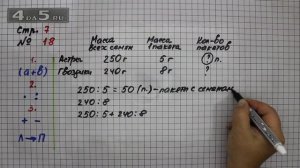 4da5.ru
Стр. 7
№ 18
Масса всех семян
Масса 1 пакета
Кол-во пакетов
Астры 250 г 5 г ? п.
Гвоздики 240 г 8 г ?
1.
(а+в)
2.
• :
3.
+ −
Л→П
250 : 5 = 50 (п.) – пакетов с семенам
240 : 8
250 : 5 + 240 : 8